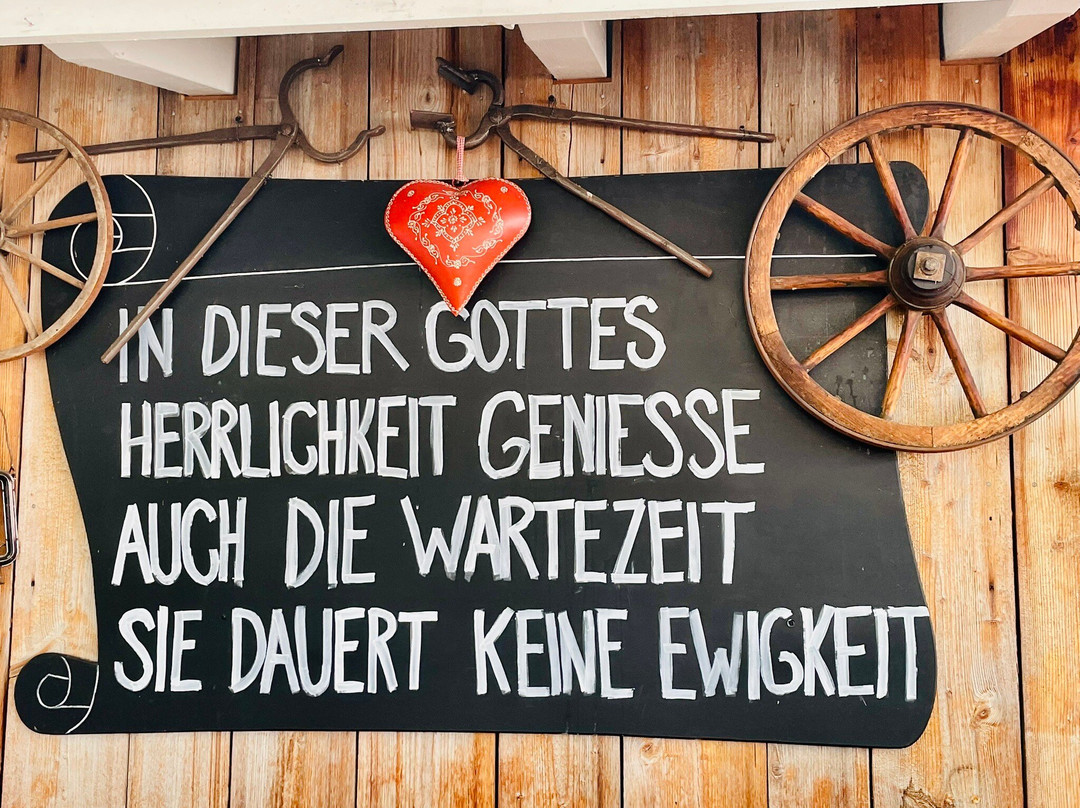 IN DIESER GOTTES
HERRLICHKEIT GENIESSE
AUCH DIE WARTEZEIT
SIE DAUERT KEINE EWIGKEIT